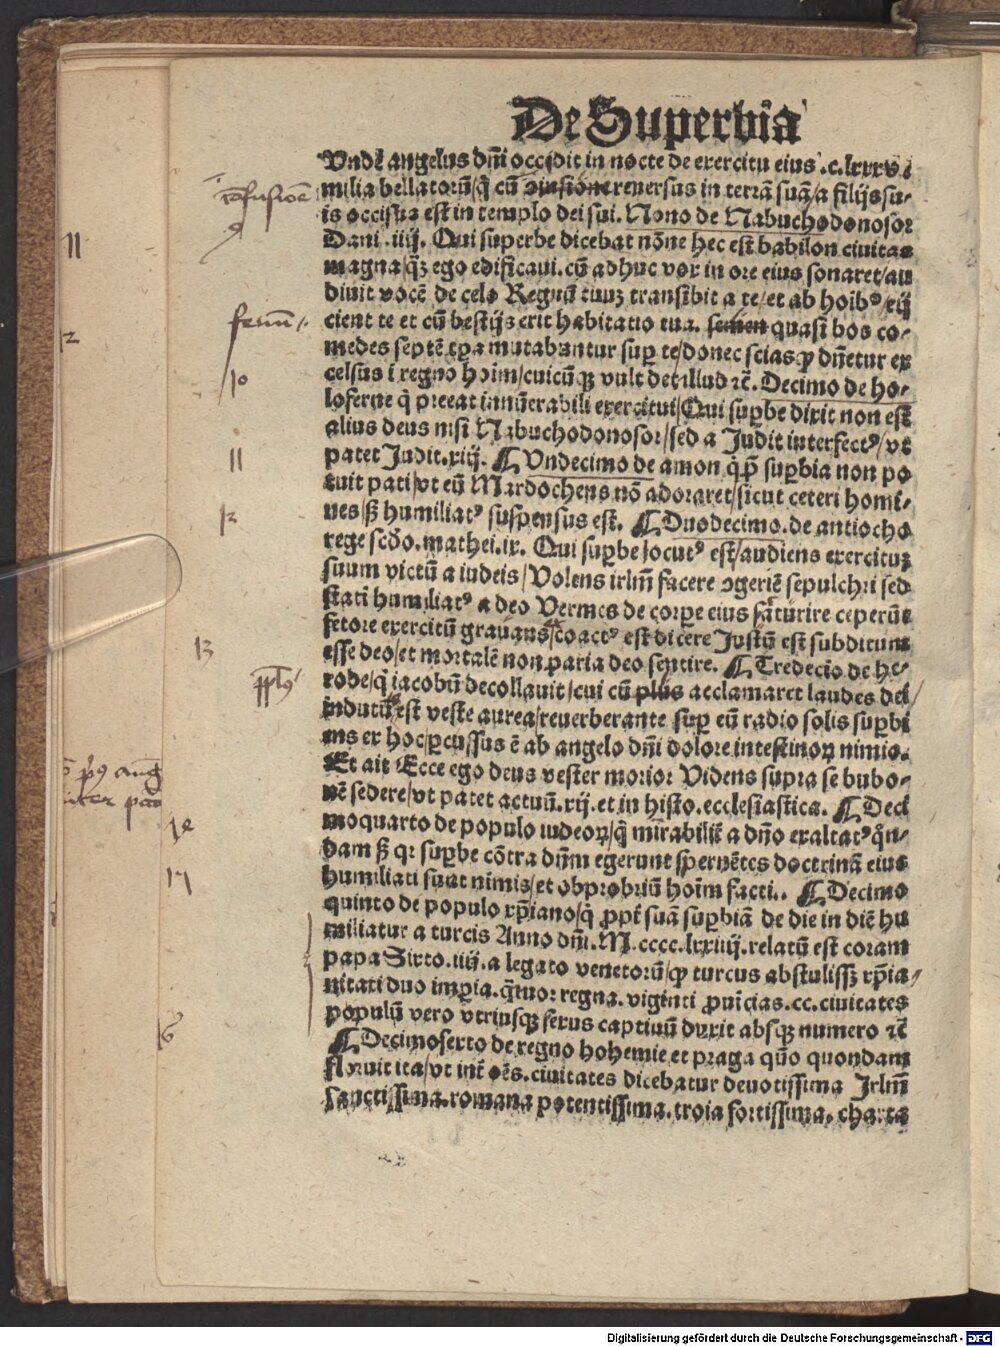 De Superbia
Vndē angelus dn̄i occidit in nocte de exercitu eius .c.lxxxv
milia bellatorū/q̄ cū ↄiusione reuersus in terrā suā/a filijs su-
is occisus est in templo dei sui. Nono de Nabuchodonosor
Dani .iiij. Qui superbe dicebat nōne hec est babilon ciuitas
magna/qꝫ ego edificaui. cū adhuc vox in ore eius sonaret/au
diuit vocē de celo Regnū tuuꝫ transibit a te/et ab hoibꝰ eij
cient te et cū bestijs erit habitatio tua. semen quasi bos co-
medes septē tp̄a mutabuntur suꝑ te/donec scias ꝙ dn̄etur ex
celsus ī regno hoim/cuicūqꝫ vult det illud ⁊c̄. Decimo de ho-
loferne q̄ preerat innūerabili exercitui/Qui suꝑbe dixit non est
alius deus nisi Nabuchodonosor/sed a Judit interfectꝰ/vt
patet Judit.xiij. ¶ Vndecimo de amon q̄ p̄ suꝑbia non po
tuit pati/vt eū Mardocheus nō adoraret/sicut ceteri homi-
nes/sꝫ humiliatꝰ suspensus est. ¶ Duodecimo. de antiocho
rege scd̄o.mathei.ix. Qui suꝑbe locutꝰ est/audiens exercituꝫ
suum victū a iudeis/Volens irl̄m facere ↄgeriē sepulchri sed
statī humiliatꝰ a deo Vermes de corꝑe eius saturire ceperūt
fetore exercitū grauans/coactꝰ est dicere Justū est subditum
esse deo/et mortalē non paria deo sentire. ¶ Tredecio de he-
rode/q̄ iacobū decollauit/cui cū plūs acclamaret laudes dei
indutus est veste aurea/reuerberante suꝑ eū radio solis suꝑbi
ens ex hoc/ꝑcussus ē ab angelo dn̄i dolore intestinoꝝ nimio.
Et ait Ecce ego deus vester morior Videns supra se bubo-
nē sedere/vt patet actuū.xij.et in histo.ecclesiastica. ¶ Deci
moquarto de populo iudeoꝝ/q̄ mirabilit̄ a dn̄o exaltatꝰ qn̄-
dam sꝫ qr suꝑbe cōtra dn̄m egerunt spernētes doctrinā eius
humiliati sunt nimis/et obprobriū hoim facti.. ¶ Decimo
quinto de populo xp̄iano/q̄ ꝓpt̄ suā suꝑbiā de die in diē hu
miliatur a turcis Anno dn̄i.M.cccc.lxxiiij.relatū est coram
papa Sixto.iiij.a legato venetorū/ꝙ turcus abstulissꝫ xp̄ia-
nitati duo imꝑia.q̄tuor regna.viginti ꝓuīcias.cc.ciuitates
populū vero vtriusqꝫ sexus captiuū duxit absqꝫ numero ⁊c̄
¶ Decimosexto de regno bohemie et praga quō quondam
floruit ita/vt int̄ oēs.ciuitates dicebatur deuotissima Jrl̄m
sanctissima.romana potentissima.troia fortissima.charta
ↄfusionē
9
fenū
10
11
12
13
pplꝰ
14
15
16
11
Digitalisierung gefördert durch die Deutsche Forschungsgemeinschaft - DFG